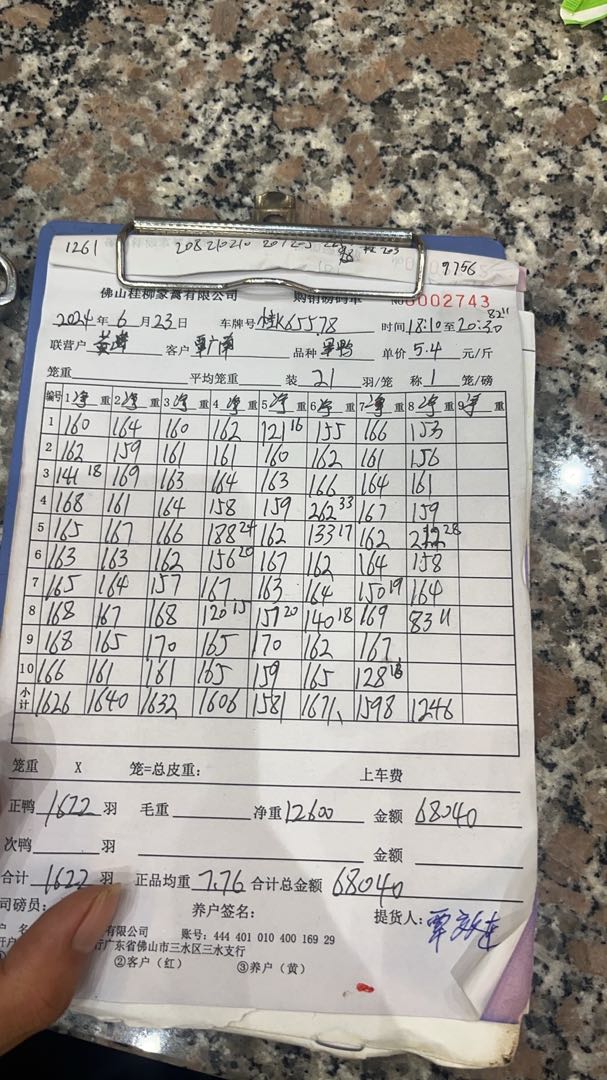 1261 208 210 210 201 205 203 9756
佛山桂柳家禽有限公司 购销磅码单 No 0002743
82"
2024年 6 月 23 日 车牌号 桂K65578 时间 18:10至20:30
联营户 客户 覃广南 品种 单价 5.4 元/斤
笼重 平均笼重 装 21 羽/笼 称 1 笼/磅
编号 1净重 2净重 3净重 4净重 5净重 6净重 7净重 8净重 9净重
1 160 164 160 162 121 16 155 166 153
2 162 159 161 161 160 162 161 156
3 141 18 169 163 164 163 166 164 161
4 168 161 164 158 159 262 33 167 159
5 165 167 166 188 24 162 133 17 162 212 28
6 163 163 162 156 20 167 162 164 158
7 165 164 157 167 163 164 150 19 164
8 168 167 168 120 15 157 20 140 18 169 83 11
9 168 165 170 165 170 162 167
10 166 161 161 165 159 165 128 18
小计 1626 1640 1632 1606 1581 1671 1598 1246
笼重 X 笼=总皮重: 上车费
正鸭 1622 羽 毛重 净重 12600 金额 68040
次鸭 羽 金额
合计 1622 羽 正品均重 7.76 合计总金额 68040
司磅员: 养户签名: 提货人:
有限公司 账号: 444 401 010 400 169 29
行广东省佛山市三水区三水支行
②客户（红） ③养户（黄）